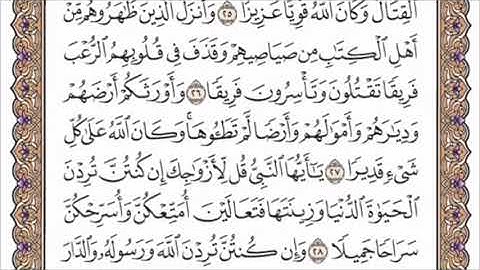 ٱلْقِتَالَ وَكَانَ ٱللَّهُ قَوِيًّا عَزِيزًا ٢٥ وَأَنزَلَ ٱلَّذِينَ ظَٰهَرُوهُم مِّنْ
أَهْلِ ٱلْكِتَٰبِ مِن صَيَاصِيهِمْ وَقَذَفَ فِى قُلُوبِهِمُ ٱلرُّعْبَ
فَرِيقًا تَقْتُلُونَ وَتَأْسِرُونَ فَرِيقًا ٢٦ وَأَوْرَثَكُمْ أَرْضَهُمْ
وَدِيَٰرَهُمْ وَأَمْوَٰلَهُمْ وَأَرْضًا لَّمْ تَطَـُٔوهَا وَكَانَ ٱللَّهُ عَلَىٰ كُلِّ
شَىْءٍ قَدِيرًا ٢٧ يَٰٓأَيُّهَا ٱلنَّبِىُّ قُل لِّأَزْوَٰجِكَ إِن كُنتُنَّ تُرِدْنَ
ٱلْحَيَوٰةَ ٱلدُّنْيَا وَزِينَتَهَا فَتَعَالَيْنَ أُمَتِّعْكُنَّ وَأُسَرِّحْكُنَّ
سَرَاحًا جَمِيلًا ٢٨ وَإِن كُنتُنَّ تُرِدْنَ ٱللَّهَ وَرَسُولَهُۥ وَٱلدَّارَ